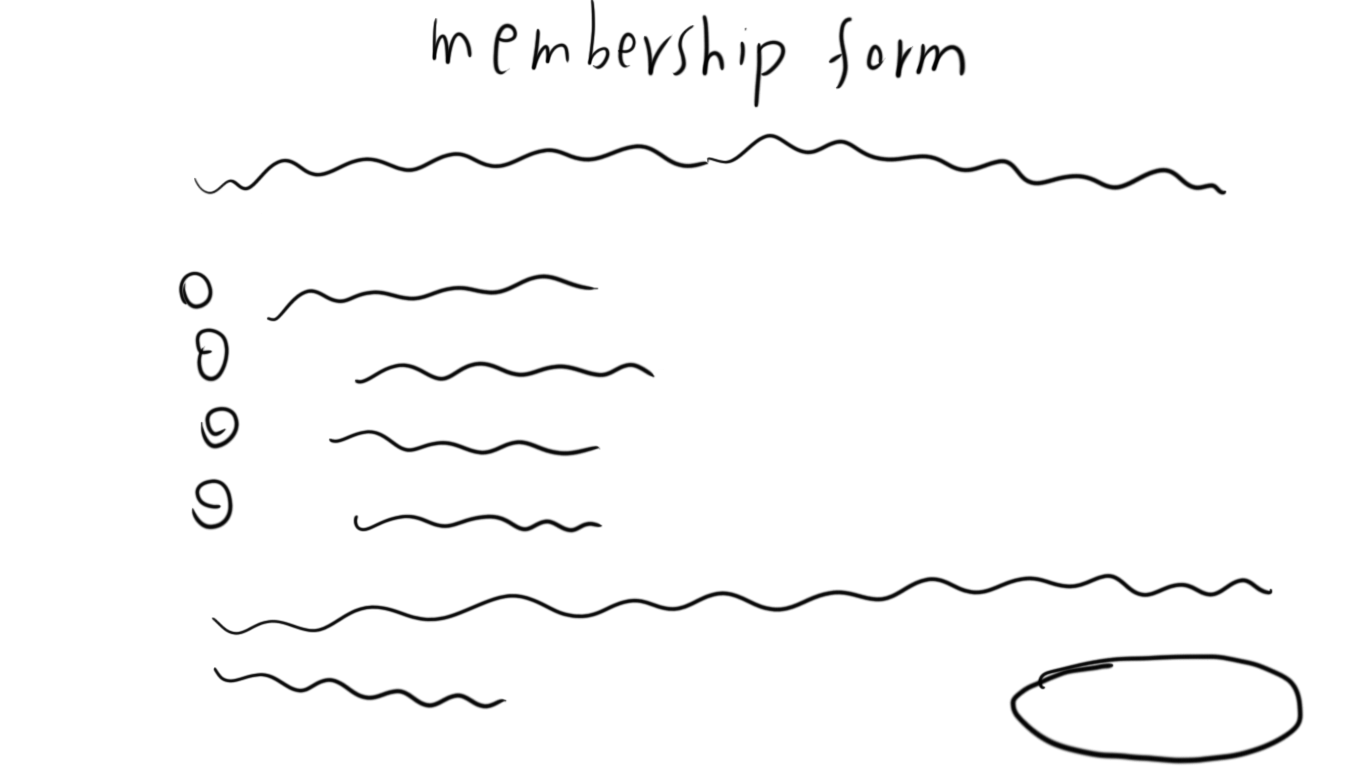 membership form